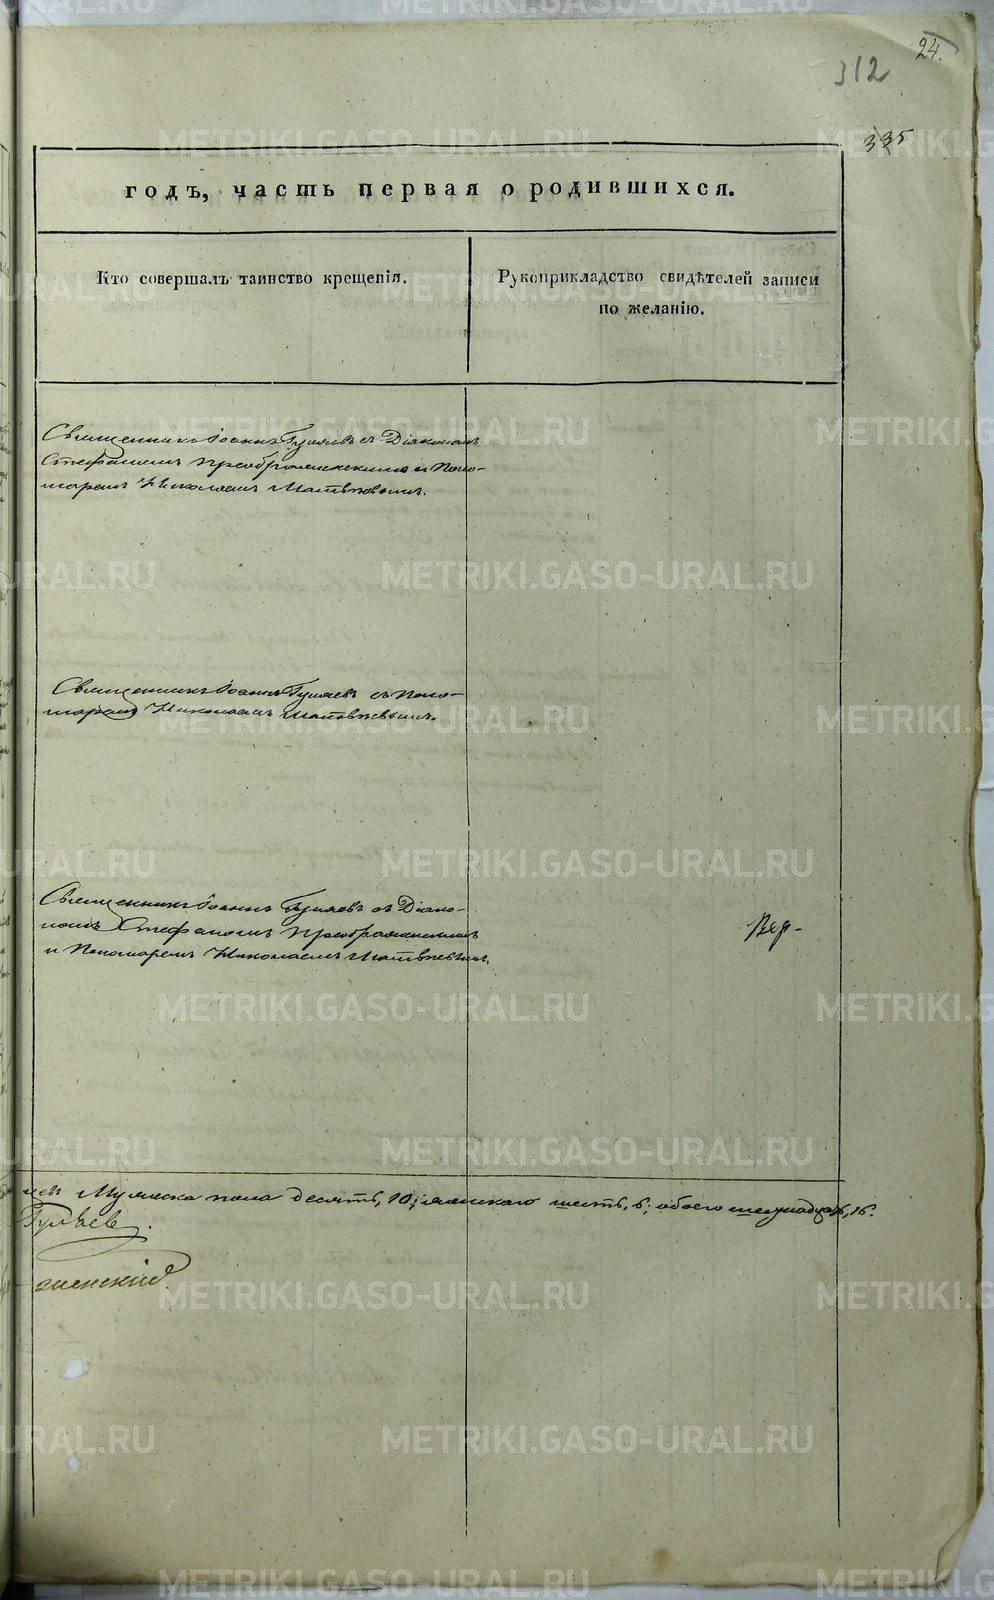 24.
312
335
годъ, часть первая о родившихся.
Кто совершалъ таинство крещенія.
Рукоприкладство свидѣтелей записи
по желанію.
Священникъ Іоаннъ Гуляевъ съ Діакономъ
Стефаномъ Преображенскимъ и Поно-
маремъ Николаемъ Матвѣевымъ.
Священникъ Іоаннъ Гуляевъ съ Поно-
маремъ Николаемъ Матвѣевымъ.
Священникъ Іоаннъ Гуляевъ съ Діако-
номъ Стефаномъ Преображенскимъ
и Пономаремъ Николаемъ Матвѣевымъ.
Мужеска пола десять, 10; женскаго шесть, 6; обоего шестнадцать, 16.
Гуляевъ.
женскій.
METRIKI.GASO-URAL.RU